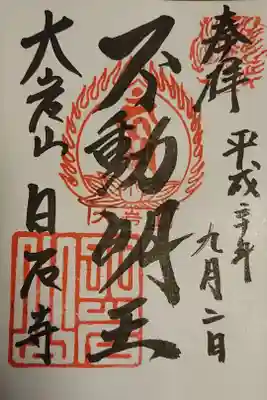 奉拝
平成年
九月二日
不動明王
大岩山
日石寺